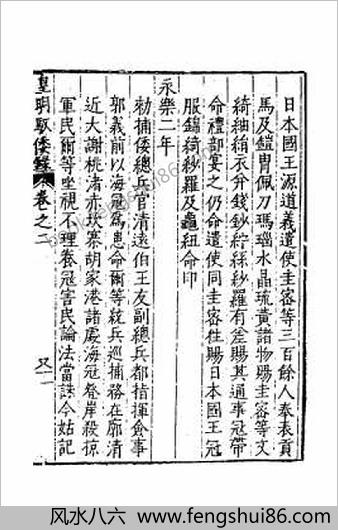 日本國王源道義遣使圭密等三百餘人奉表貢
馬及鎧冑佩刀瑪瑙水晶琉黃諸物賜圭密等文
綺紬絹衣并錢鈔紵絲紗羅有差賜其通事冠帶
命禮部宴之仍命遣使同圭密徃賜日本國王冠
服錦綺紗羅及龜紐命印
永樂二年
勑捕倭總兵官清遠伯王友副總兵都指揮僉事
郭義前以海冦爲患命爾等統兵巡捕務在廓清
近大謝桃渚赤坎寨胡家港諸處海冦登岸殺掠
軍民爾等坐視不理養冦害民論法當誅今姑記
皇明馭倭錄 卷之二 又二
风水八六 www.fengshui86.com